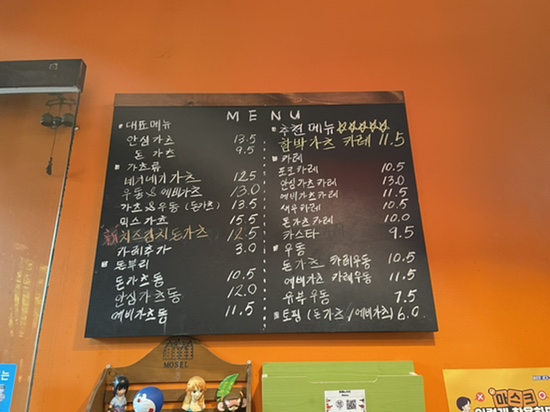 MENU
대표메뉴
안심가츠 13.5
돈 가츠 9.5
가츠류
네가네기가츠 12.5
우동&에비가츠 13.0
가츠&우동 (돈가츠) 13.5
믹스가츠 15.5
新 치즈김치돈가츠 12.5
카레추가 3.0
돈부리
돈가츠동 10.5
안심가츠동 12.0
에비가츠동 11.5
추천메뉴☆☆☆☆☆
함박가츠 카레 11.5
카레
포크카레 10.5
안심가츠카레 13.0
에비가츠카레 11.5
새우카레 10.5
돈가츠카레 10.0
카스타 9.5
우동
돈가츠 카레우동 10.5
에비가츠 카레우동 11.5
유부우동 7.5
토핑 (돈가츠/에비가츠) 6.0
MOSEL
는
마스크